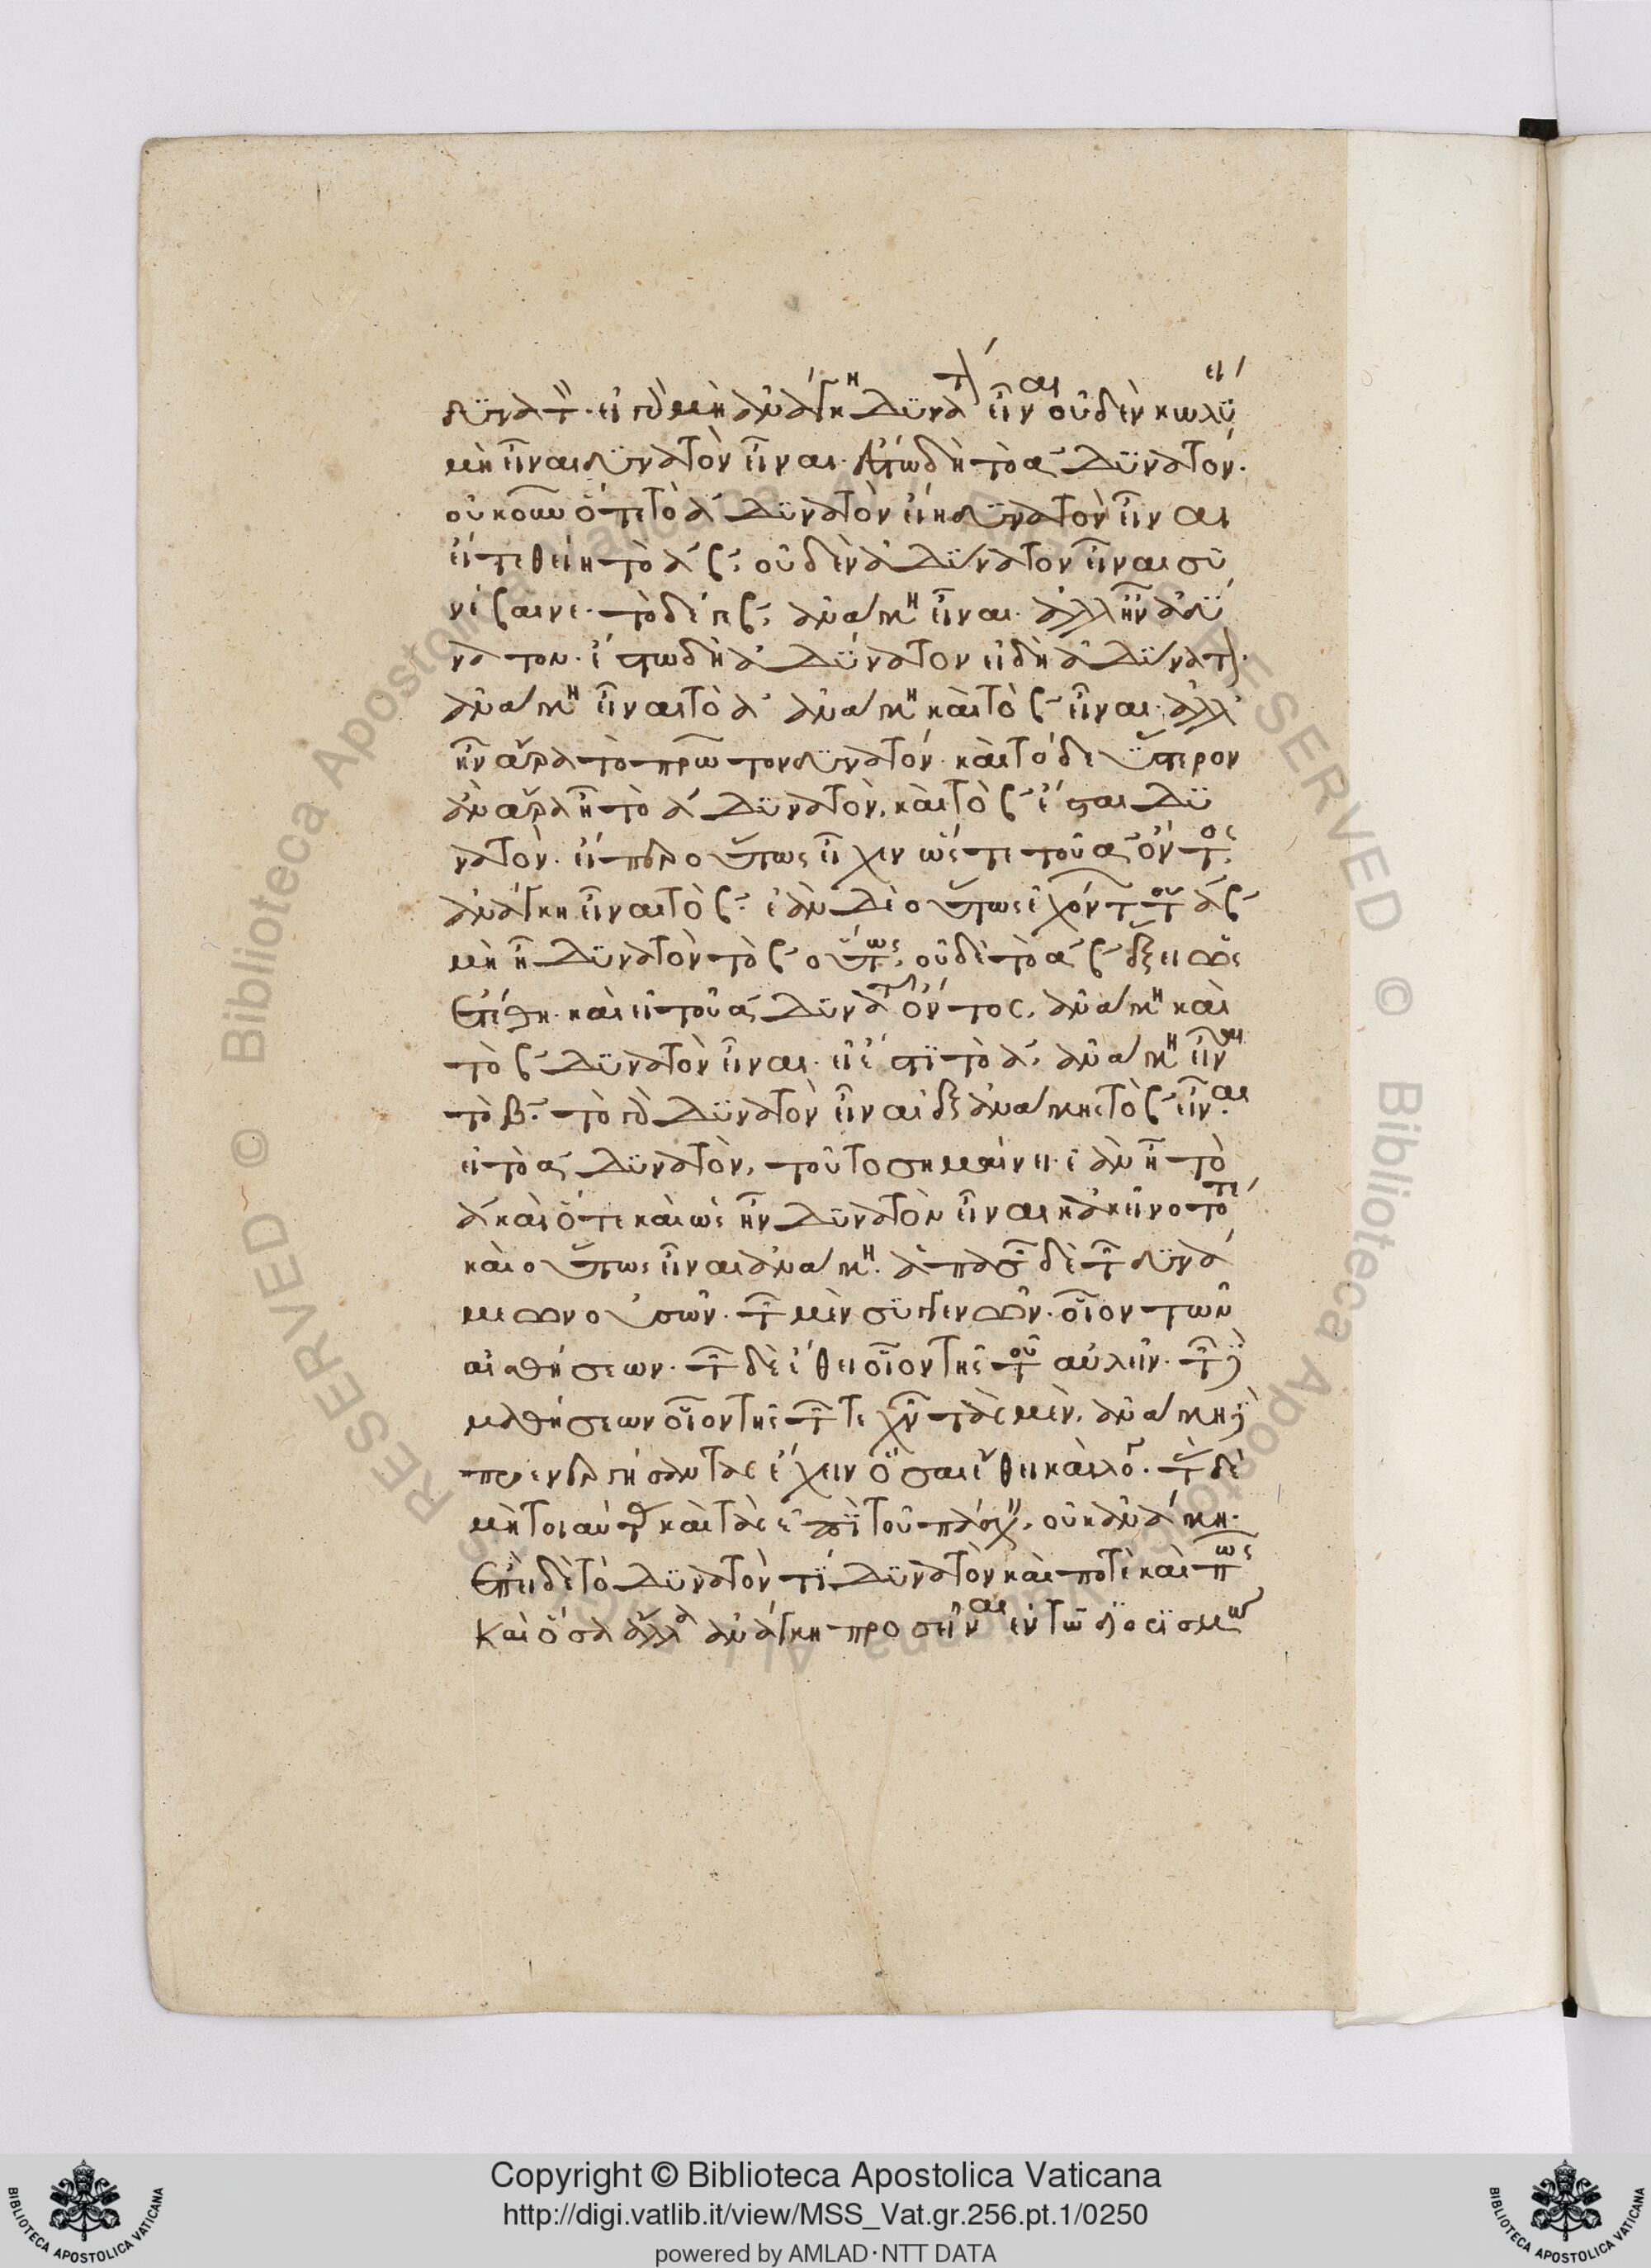 δυνατόν. εἰ γὰρ μὴ ἀνάγκη δυνατὸν εἶναι οὐδὲν κωλύει
μὴ εἶναι δυνατὸν εἶναι. ἔστω δὴ τὸ α δυνατόν.
οὐκοῦν ὅτε τὸ α δυνατὸν εἴη δυνατὸν εἶναι
εἰ τεθείη τὸ α β. οὐδὲν ἀδύνατον εἶναι συ
νέβαινε. τὸ δέ γε β, ἀνάγκη εἶναι. ἀλλ ἦν ἀδύ
νατον. ἔστω δὴ ἀδύνατον εἰ δὴ ἀδύνατον.
ἀνάγκη εἶναι τὸ α ἀνάγκη καὶ τὸ β εἶναι. ἀλλ'
ἦν ἄρα τὸ πρῶτον δυνατόν. καὶ τὸ δεύτερον
ἂν ἄρα ᾖ τὸ α δυνατὸν, καὶ τὸ β ἔσται δυ
νατόν. εἴπερ οὕτως εἶχεν ὥστε τοῦ α ὄντος,
ἀνάγκη εἶναι τὸ β. ἐὰν δὲ οὕτως ἐχόντ τοῦ α β
μὴ ᾖ δυνατὸν τὸ β οὕτως, οὐδὲ τὸ α β ἕξει ὡς
ἐτέθη. καὶ εἰ τοῦ α δυνατοῦ ὄντος, ἀνάγκη καὶ
τὸ β δυνατὸν εἶναι. εἰ ἔστι τὸ α, ἀνάγκη εἶναι
τὸ β. τὸ γὰρ δυνατὸν εἶναι ἐξ ἀνάγκης τὸ β εἶναι.
εἰ τὸ α δυνατὸν, τοῦτο σημαίνει. ἐὰν ᾖ τὸ
α καὶ ὅτε καὶ ὡς ἦν δυνατὸν εἶναι κἀκεῖνο τότε
καὶ οὕτως εἶναι ἀνάγκη. ἁπασῶν δὲ τῶν δυνά
μεων οὐσῶν. τῶν μὲν συγγενῶν. οἷον τῶν
αἰσθήσεων. τῶν δὲ ἔθει οἷον τῆς τοῦ αὐλεῖν. τῶν δὲ
μαθήσεων οἷον τῆς τῶν τεχνῶν τὰς μὲν, ἀνάγκη
προενεργήσαντας ἔχειν ὅσαι ἔθει καὶ λόγῳ. τὰς δὲ
μὴ τοιαύτας καὶ τὰς ἐπὶ τοῦ πάσχειν, οὐκ ἀνάγκη.
Ἐπεὶ δὲ τὸ δυνατὸν τὶ δυνατὸν καὶ ποτὲ καὶ πῶς
καὶ ὅσα ἄλλα ἀνάγκη προσεῖναι ἐν τῶ διορισμῶ
Copyright © Biblioteca Apostolica Vaticana
http://digi.vatlib.it/view/MSS_Vat.gr.256.pt.1/0250
powered by AMLAD·NTT DATA